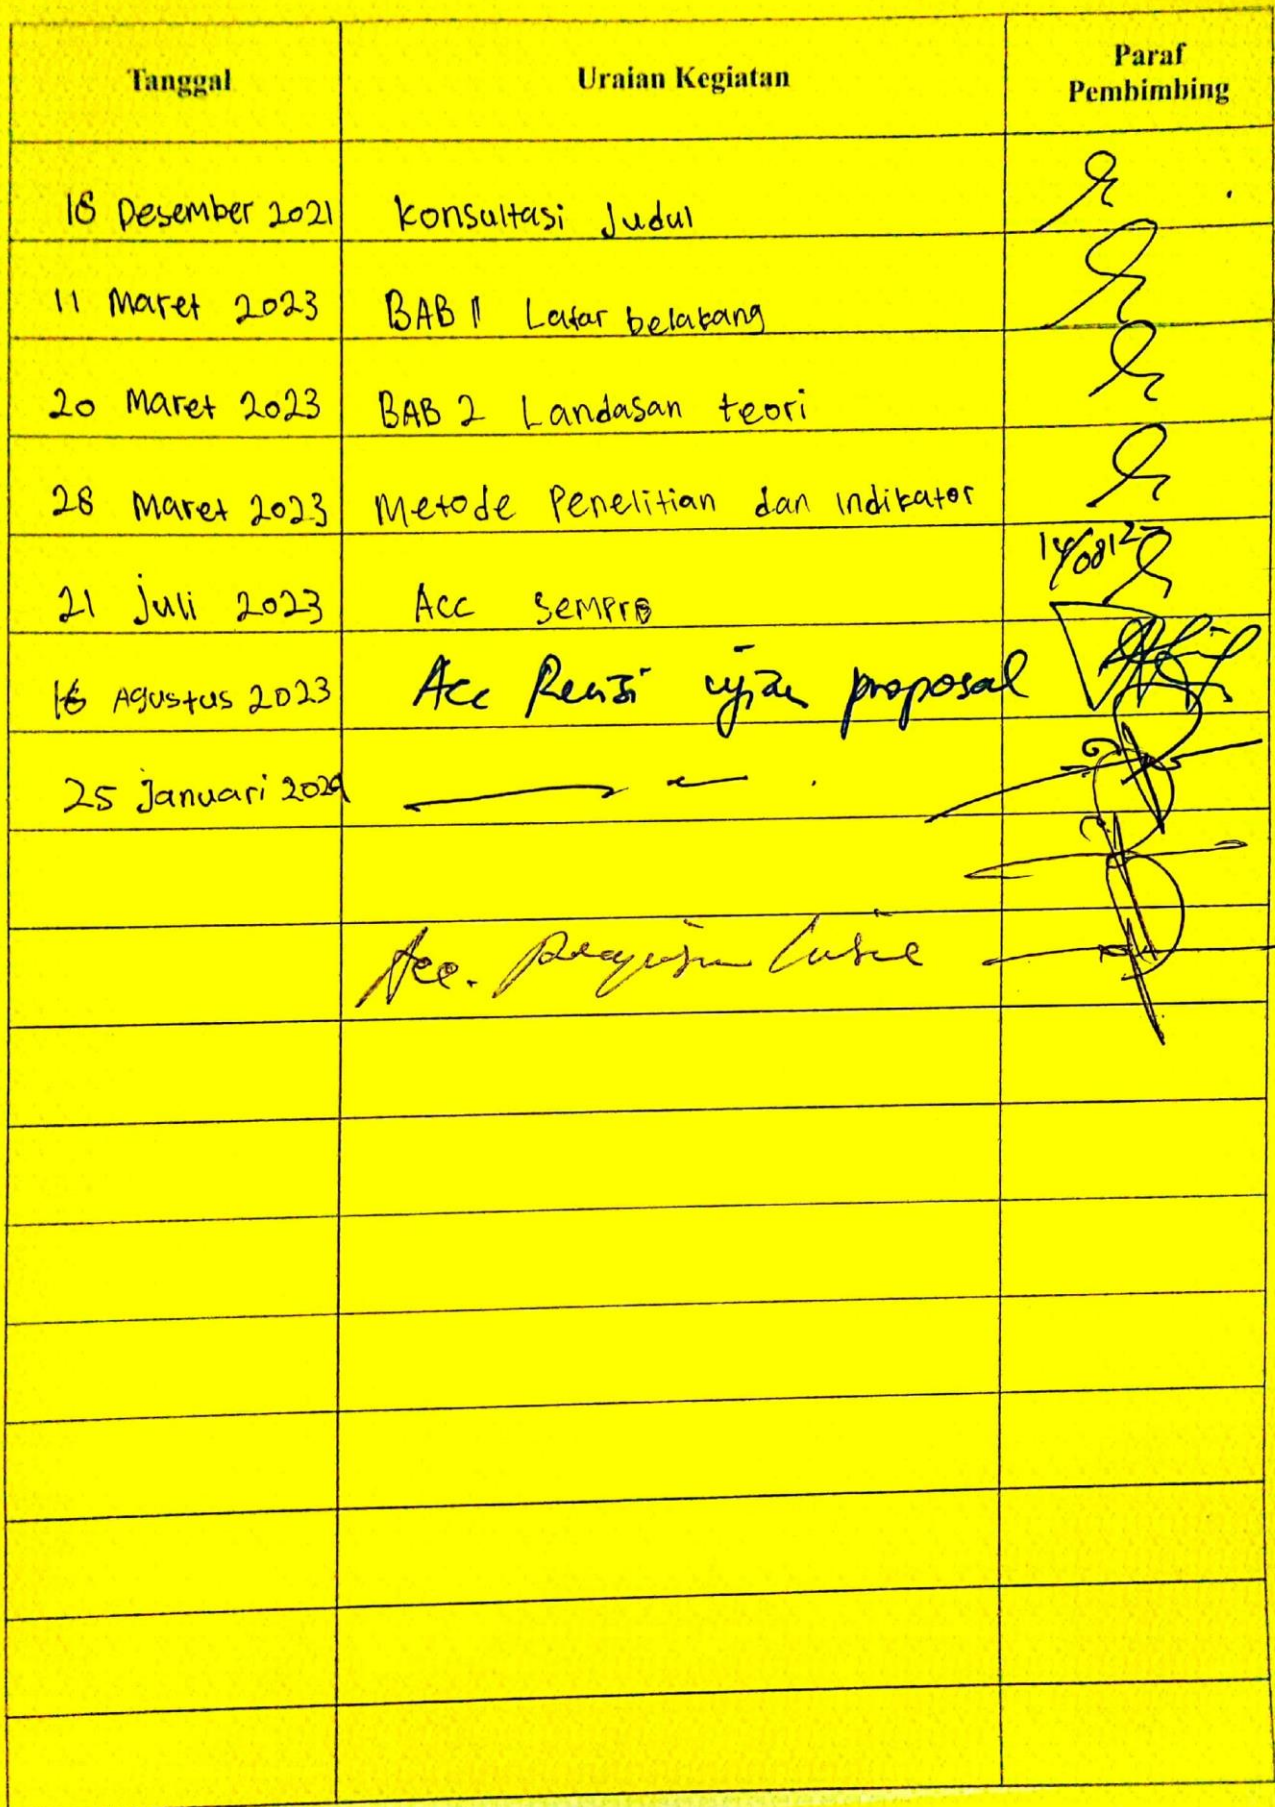 Tanggal Uraian Kegiatan Paraf Pembimbing
18 Desember 2021 Konsultasi Judul
11 Maret 2023 BAB 1 Latar belakang
20 Maret 2023 BAB 2 Landasan teori
28 Maret 2023 Metode Penelitian dan indikator
21 Juli 2023 Acc Sempro
16 Agustus 2023 Acc Revisi ujian proposal
25 Januari 2024
Acc.